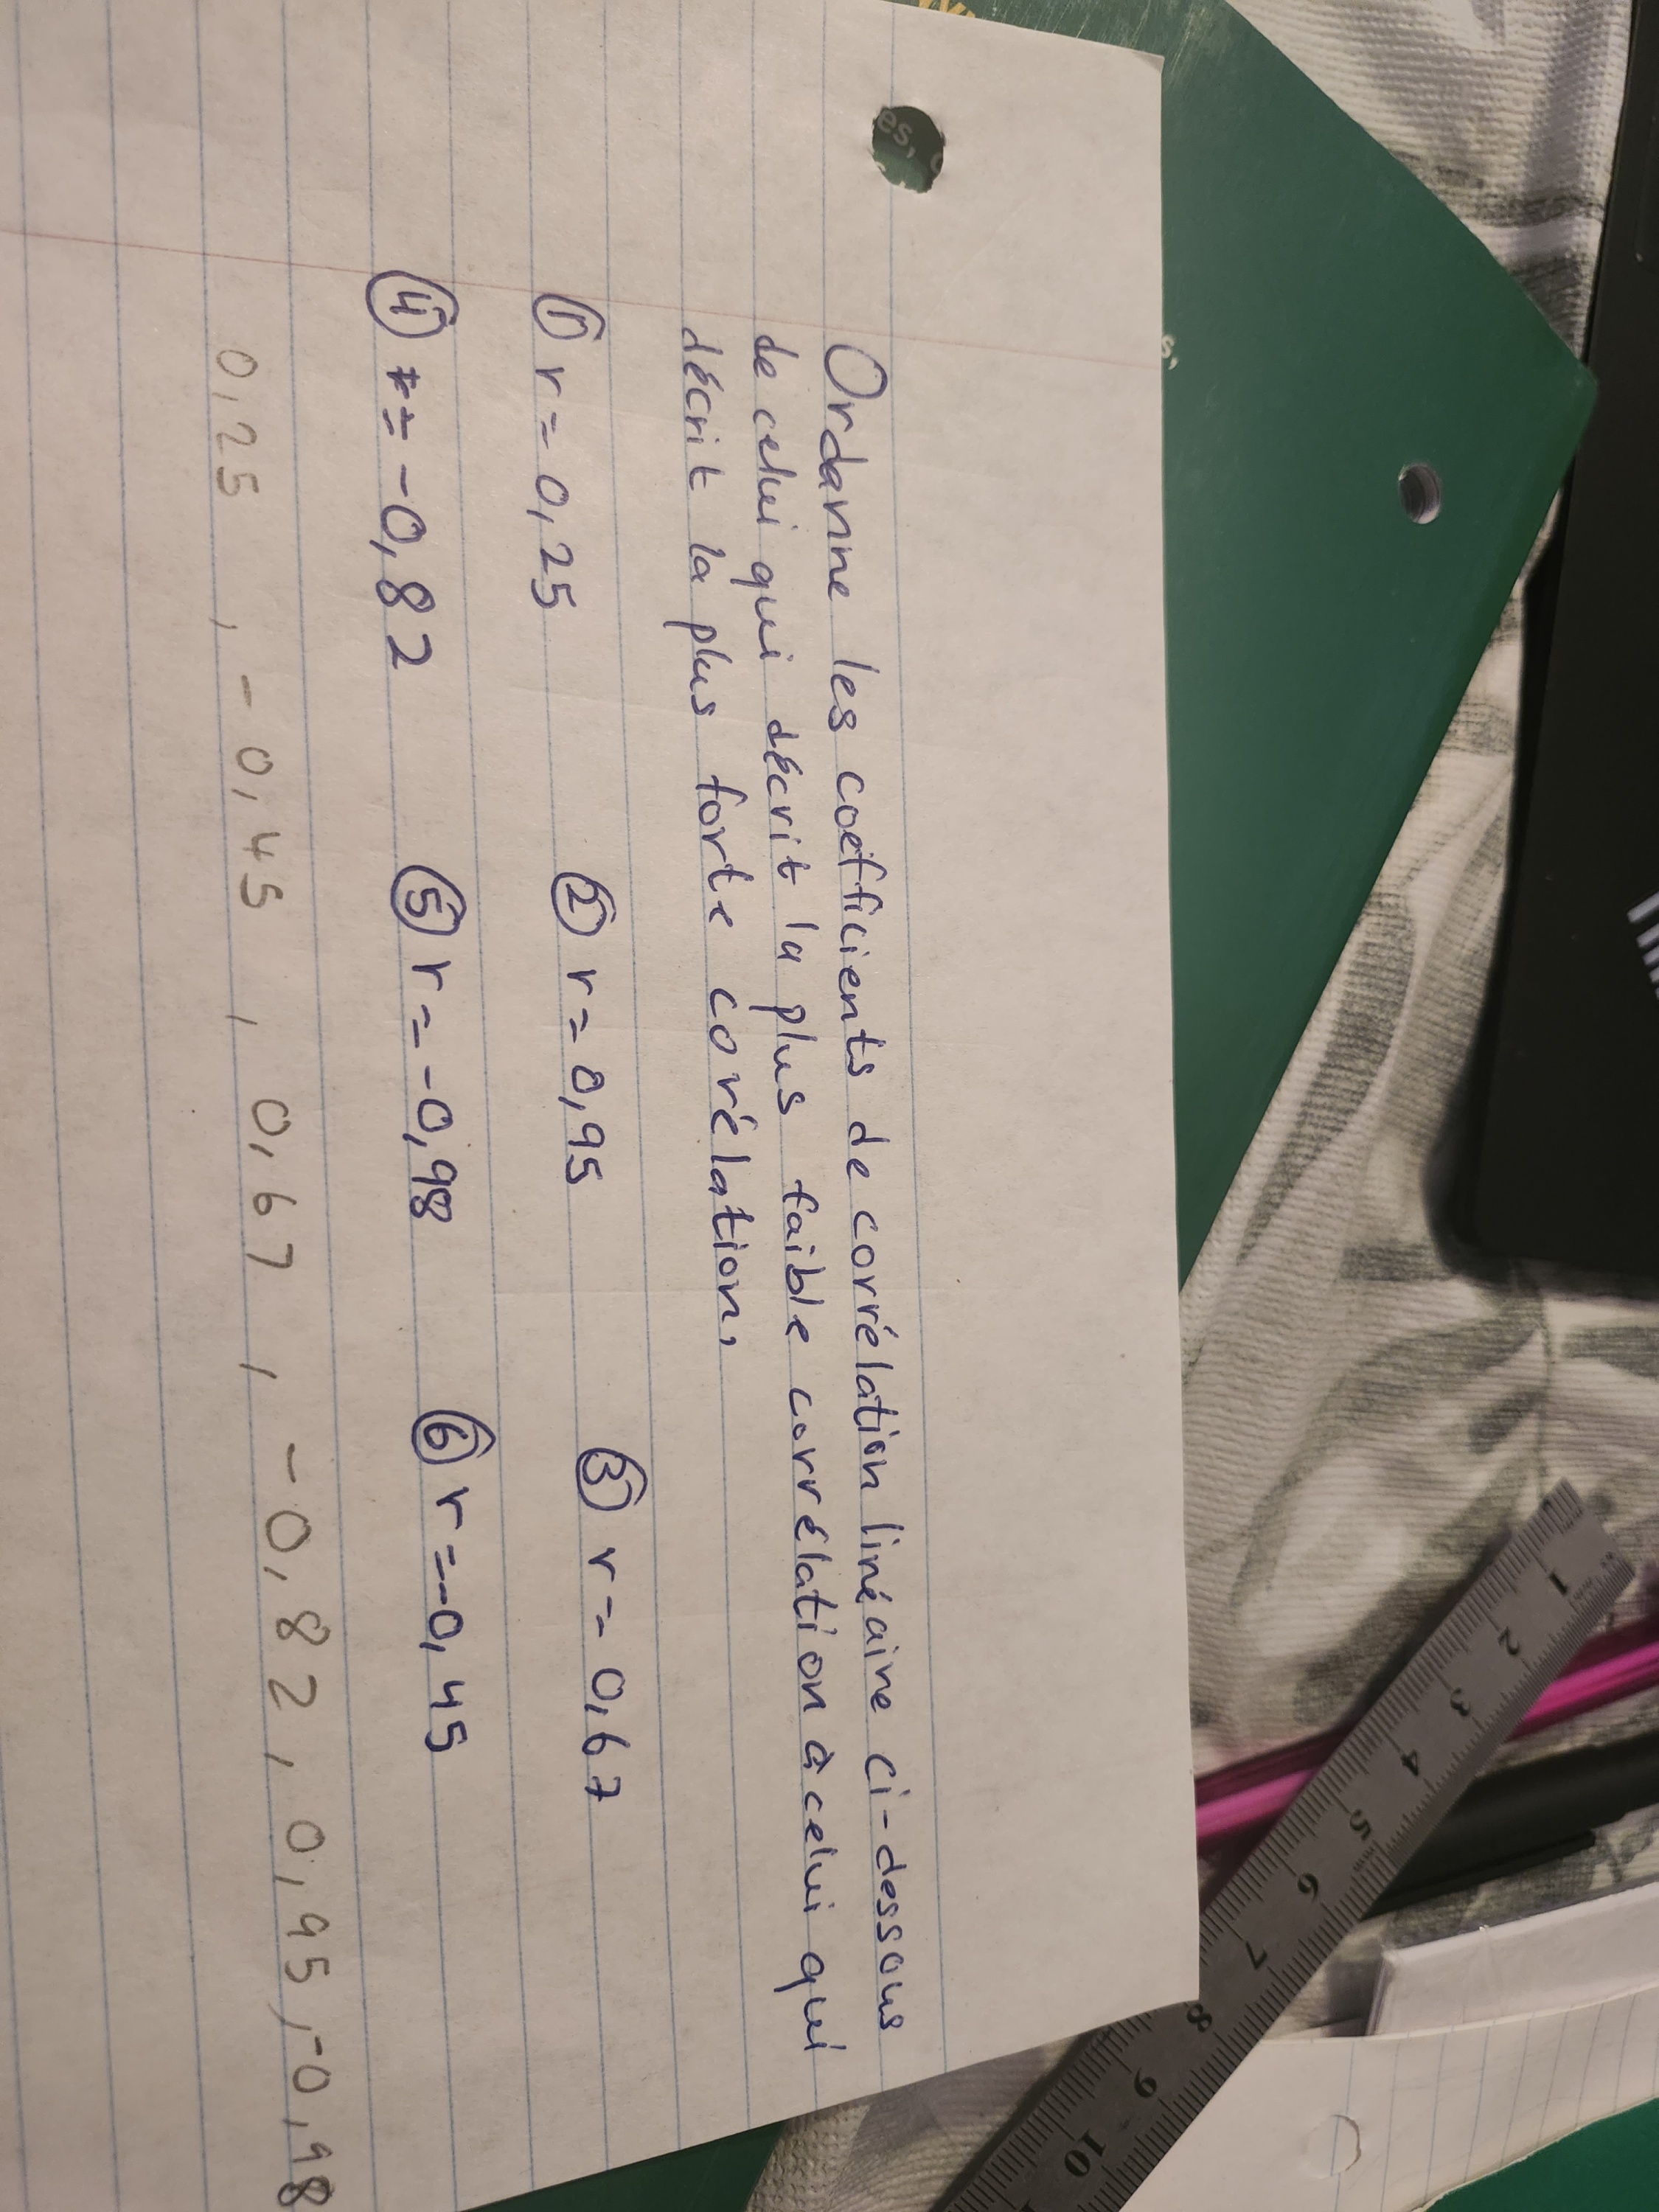 Ordanne les coefficients de corrélation linéaire ci-dessous
de celui qui décrit la plus faible corrélation à celui qui
décrit la plus forte corélation.
① r = 0,25 ② r = 0,95 ③ r = 0,67
④ r = -0,82 ⑤ r = -0,98 ⑥ r = -0,45
0,25 , -0,45 , 0,67 , -0,82 , 0,95 , -0,98
es,
s,
1 2 3 4 5 6 7 8 9 10